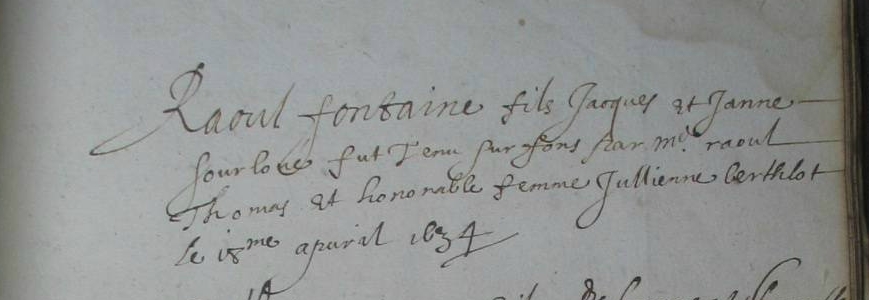 Raoul fontaine fils Jacques et Janne
fut Tenu sur fons par me. raoul
Thomas et honorable femme Jullienne berthlot
le 18me apuril 1634